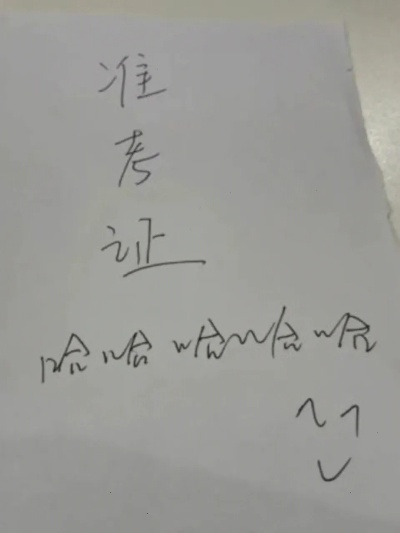 准
考
证
哈哈哈哈哈